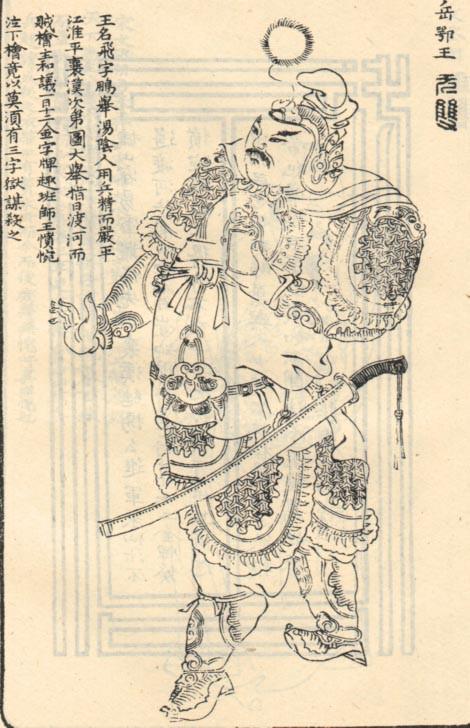 岳鄂王 无雙
王名飛字鵬舉湯陰人用兵精而嚴平
江淮平襄漢次第圖大舉指日渡河而
賊檜主和議一日十二金字牌趣班師王憤惋
泣下檜竟以莫須有三字獄謀殺之